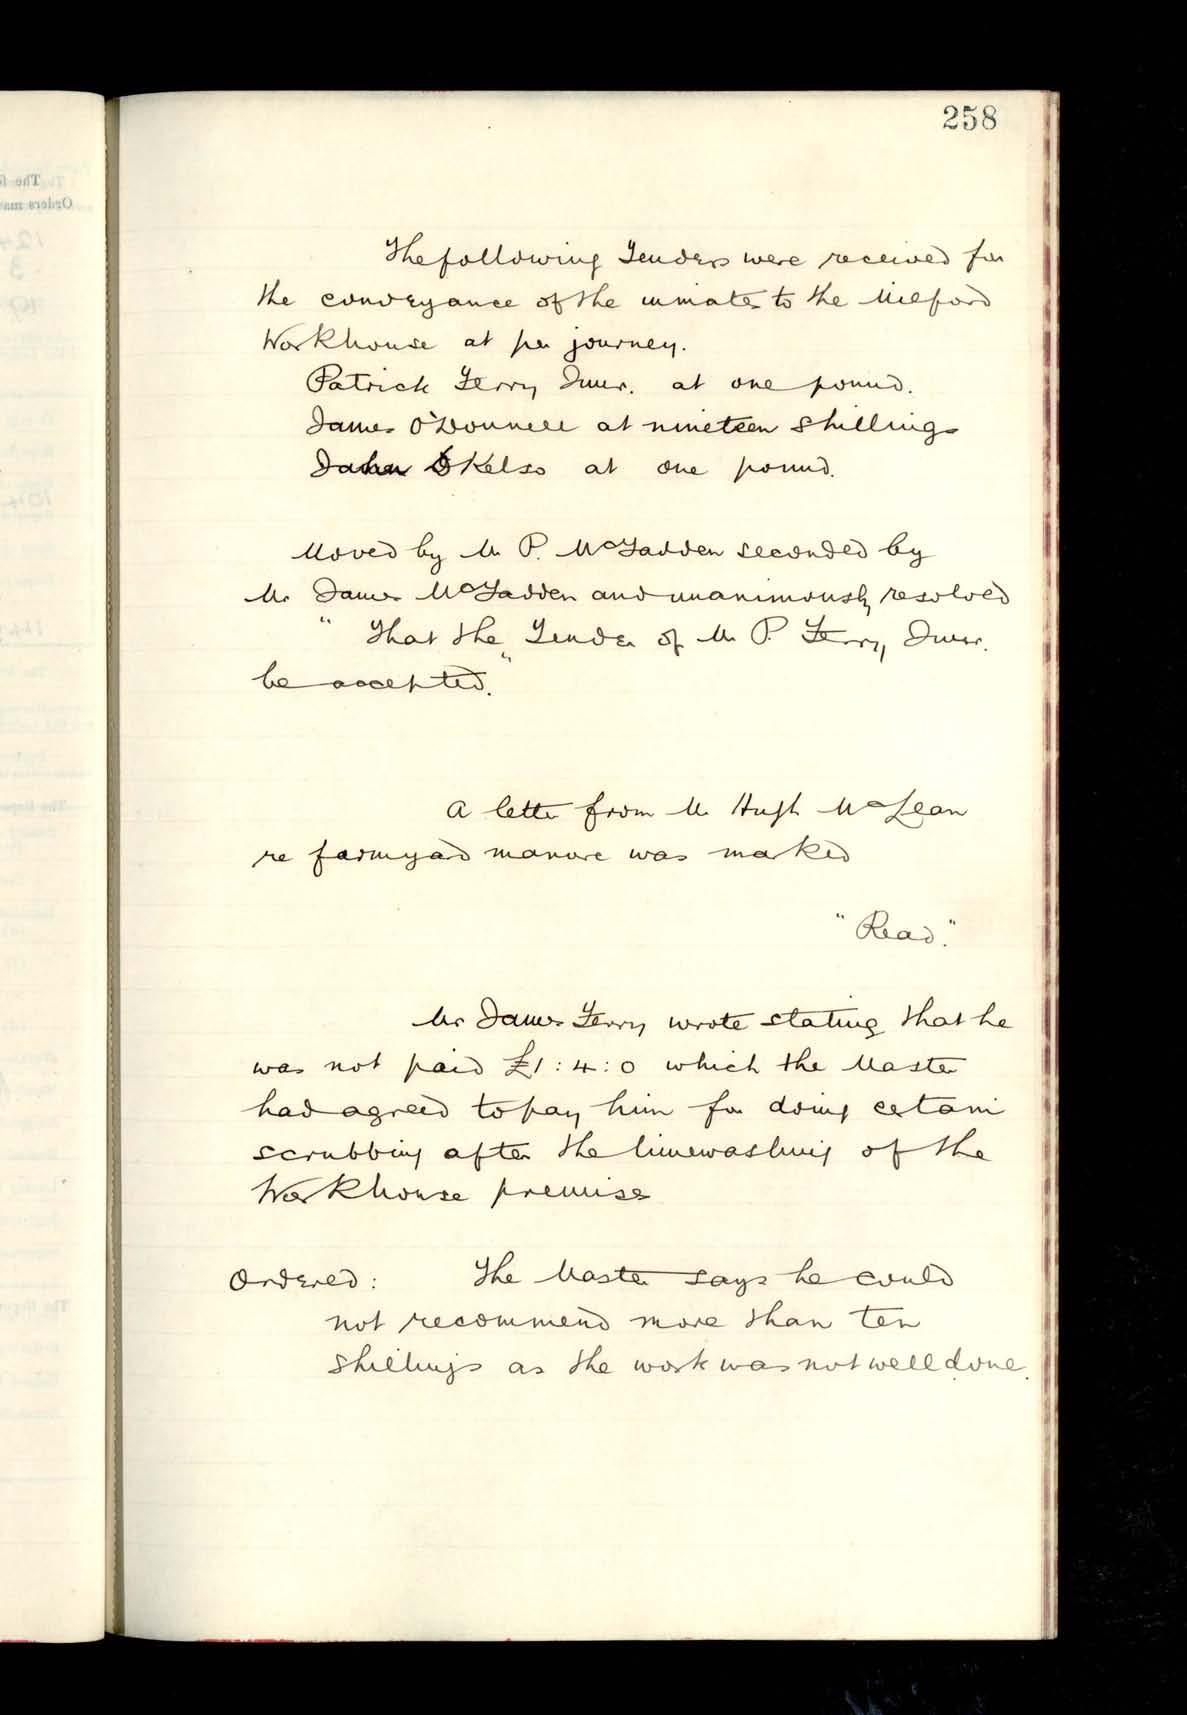 258
The following Tenders were received for
the conveyance of the inmates to the Milford
Workhouse at per journey.
Patrick Ferry Inver. at one pound.
James O'Donnell at nineteen shillings
John Kelso at one pound.
Moved by Mr P. McFadden seconded by
Mr James McFadden and unanimously resolved
" That the Tender of Mr P. Ferry, Inver.
be accepted."
A letter from Mr Hugh McLean
re farmyard manure was marked
"Read."
Mr James Ferry wrote stating that he
was not paid £1:4:0 which the Master
had agreed to pay him for doing certain
scrubbing after the limewashing of the
Workhouse premises
Ordered: The Master says he could
not recommend more than ten
shillings as the work was not well done.
The
Orders ma